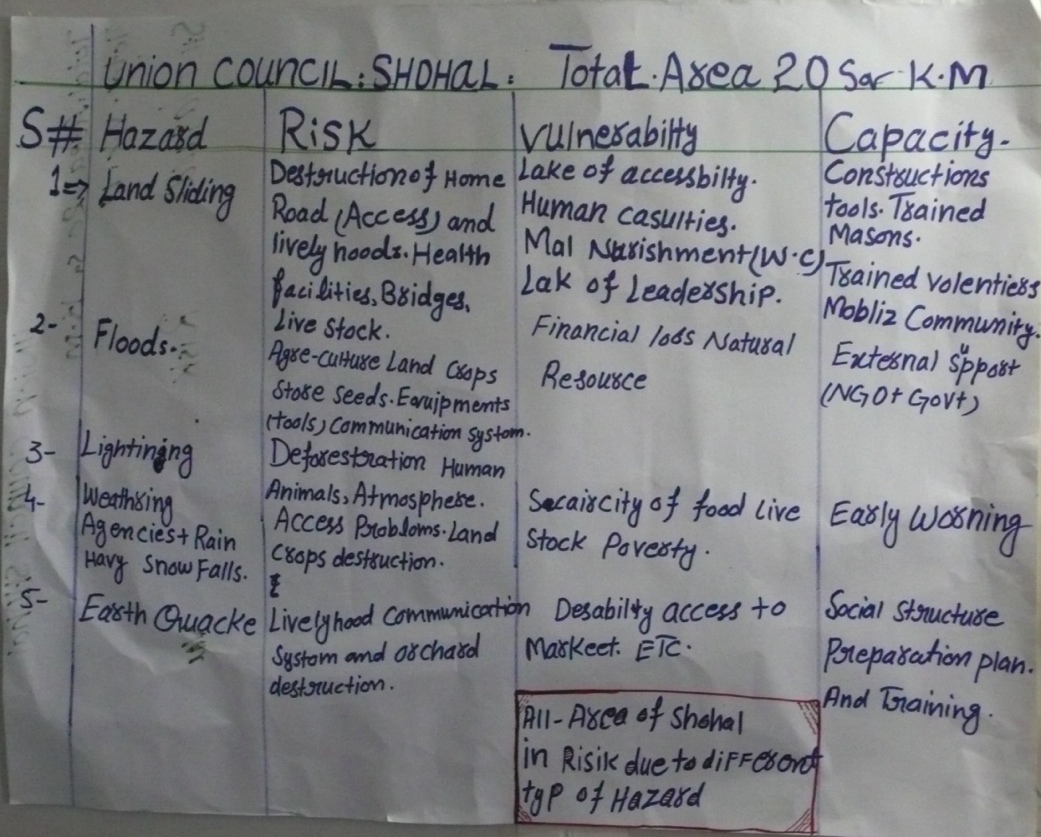 Union COUNCIL: SHOHAL: Total. Area 20 Sqr K.M
S# Hazard Risk Vulnerability Capacity.
1=> Land Sliding
Destruction of Home
Road (Access) and
lively hoods. Health
facilities, Bridges,
Live Stock.
Lake of accessbilty.
Human casulties.
Mal Nurishment (W.C)
Lak of Leadership.
Constructions
tools. Trained
Masons.
Trained volentiers
Mobliz Community.
2- Floods.
Agre-culture Land Crops
Store Seeds. Equipments
(tools) Communication System.
Financial loss Natural
Resource
External Support
(NGO+ GOVt)
3- Lightining
Deforestration Human
Animals, Atmosphere.
4- Weathring
Agencies + Rain
Havy Snow Falls.
Access Probloms. Land
Crops destruction.
&
Secaircity of food live
Stock Poverty.
Early Worning
5- Earth Quacke
Livelyhood Communication
System and orchard
destruction.
Desabilty access to
Markeet. ETC.
Social Structure
Preparation plan.
And Training.
All-Area of Shohal
in Risik due to diFFerent
typ of Hazard